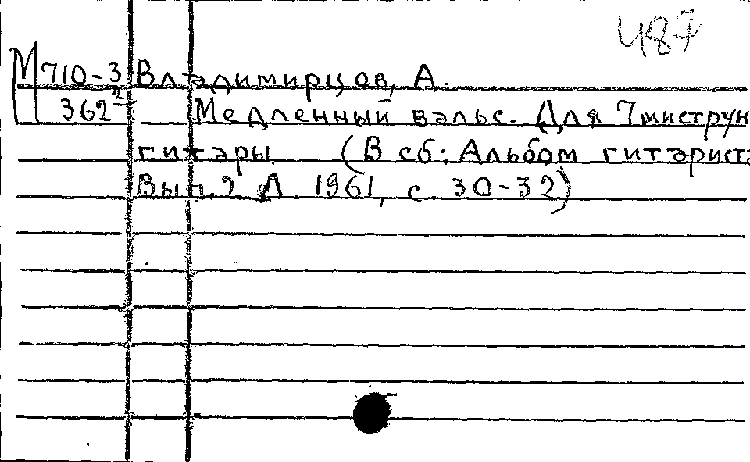 487
М710-3 Владимирцов, А.
362² Медленный вальс. Для 7миструн
гитары (В сб: Альбом гитарист
Вып. 2 Л 1961, с. 30-32)